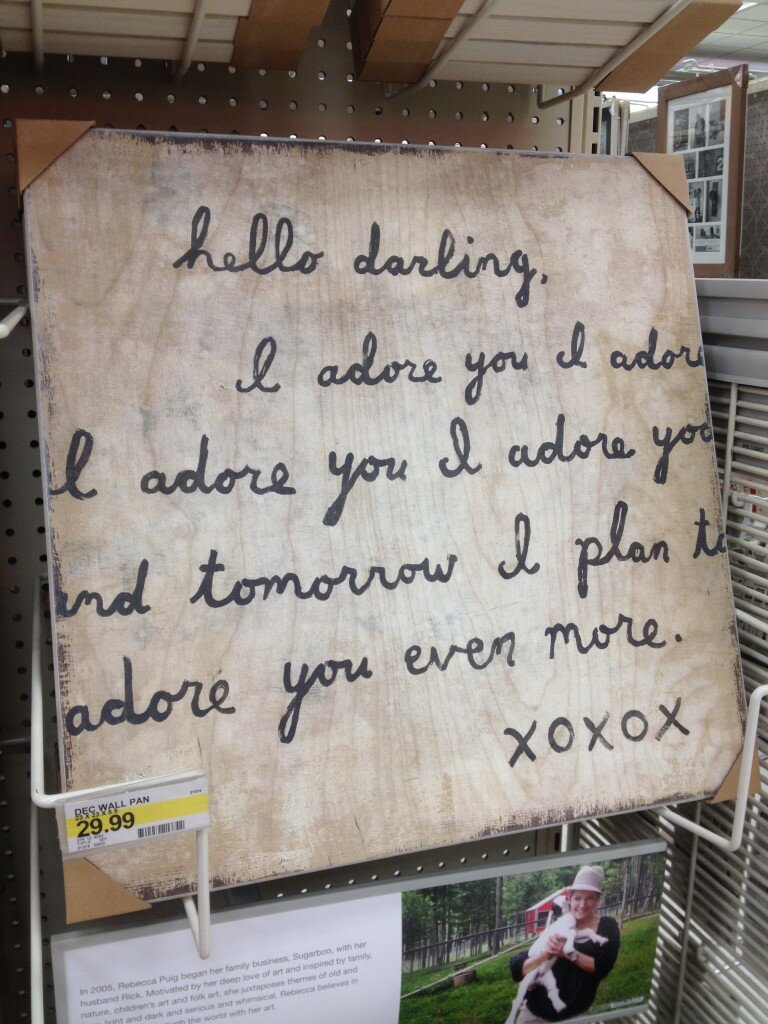 hello darling,
I adore you I adore
I adore you I adore you
and tomorrow I plan to
adore you even more.
xoxox
DEC WALL PAN
29.99
In 2005, Rebecca Puig began her family business, Sugarboo, with her
husband Rick. Motivated by her deep love of art and inspired by family,
nature, children's art and folk art, she juxtaposes themes of old and
light and dark and serious and whimsical. Rebecca believes in
the world with her art.